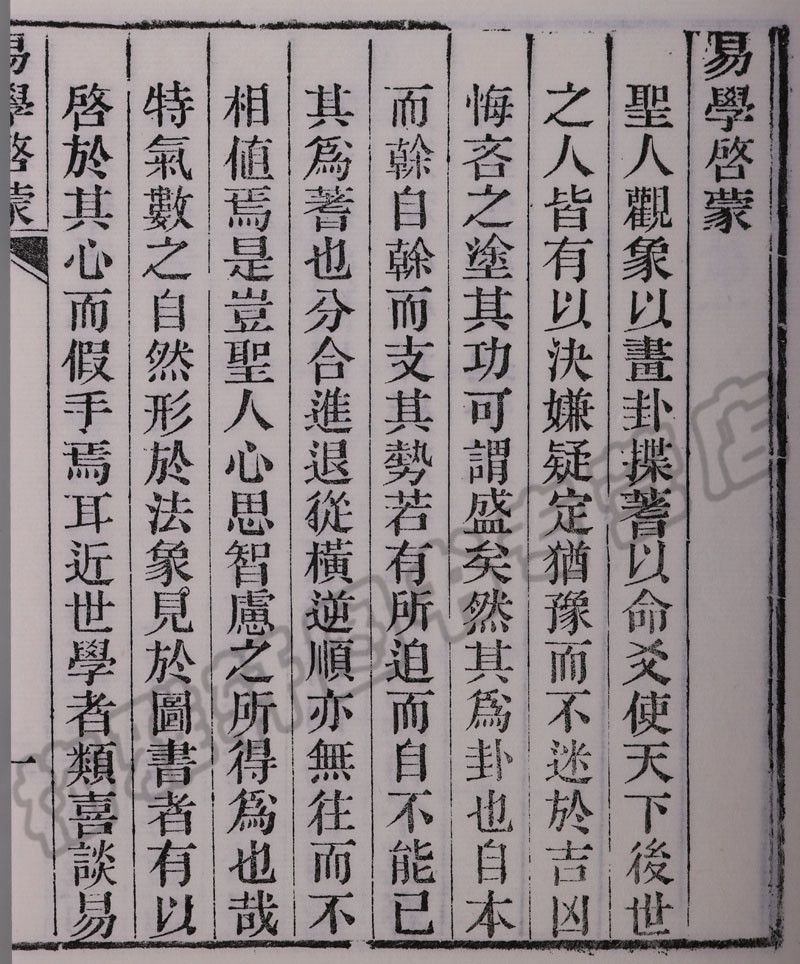 易學啓蒙
聖人觀象以畫卦揲蓍以命爻使天下後世
之人皆有以決嫌疑定猶豫而不迷於吉凶
悔吝之塗其功可謂盛矣然其爲卦也自本
而榦自榦而支其勢若有所迫而自不能已
其爲蓍也分合進退從橫逆順亦無往而不
相值焉是豈聖人心思智慮之所得爲也哉
特氣數之自然形於法象見於圖書者有以
啓於其心而假手焉耳近世學者類喜談易
易學啓蒙
一